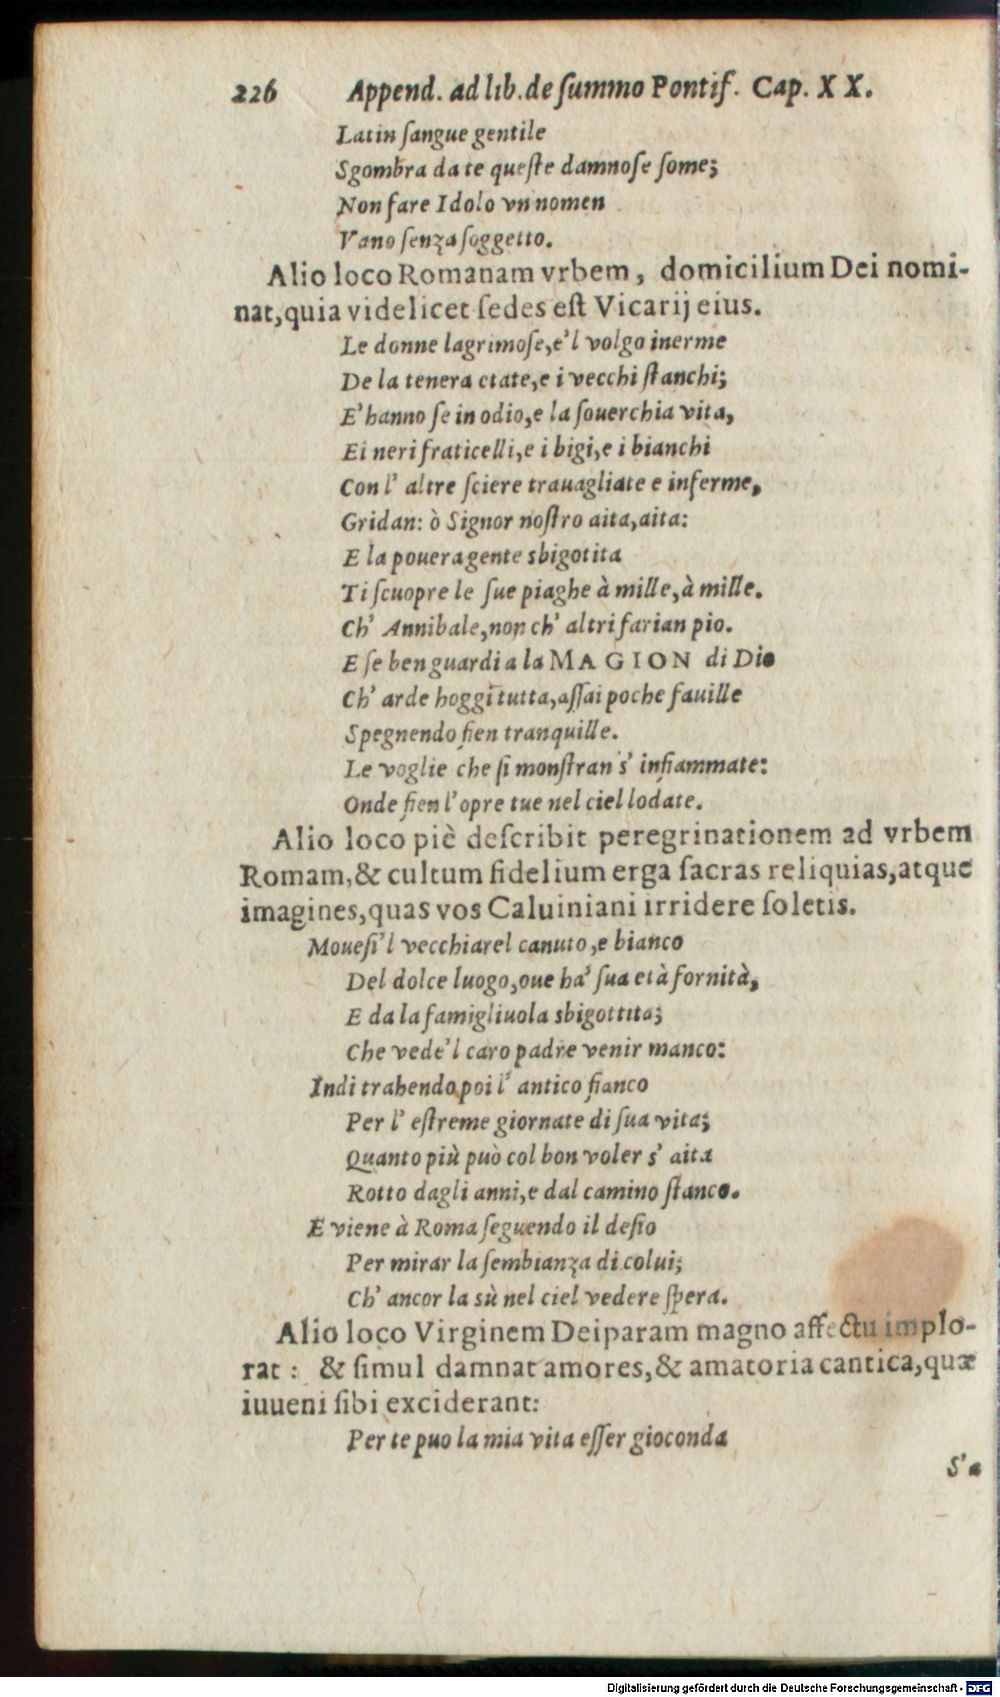 226 Append. ad lib. de ſummo Pontif. Cap. XX.
Latin ſangue gentile
Sgombra da te queſte damnoſe ſome;
Non fare Idolo vn nomen
Vano ſenza ſoggetto.
Alio loco Romanam vrbem, domicilium Dei nomi-
nat,quia videlicet ſedes eſt Vicarij eius.
Le donne lagrimoſe,e'l volgo inerme
De la tenera etate,e i vecchi ſtanchi;
E'hanno ſe in odio,e la ſouerchia vita,
Ei neri fraticelli,e i bigi,e i bianchi
Con l' altre ſciere trauagliate e inferme,
Gridan: ò Signor noſtro aita,aita:
E la pouera gente sbigotita
Ti ſcuopre le ſue piaghe à mille,à mille.
Ch' Annibale,non ch' altri farian pio.
E ſe ben guardi a la MAGION di Dio
Ch' arde hoggi tutta,aſſai poche fauille
Spegnendo fien tranquille.
Le voglie che ſi monſtran s' infiammate:
Onde fien l'opre tue nel ciel lodate.
Alio loco piè deſcribit peregrinationem ad vrbem
Romam,& cultum fidelium erga ſacras reliquias,atque
imagines,quas vos Caluiniani irridere ſoletis.
Moueſi'l vecchiarel canuto,e bianco
Del dolce luogo,oue ha' ſua età fornità,
E da la famigliuola sbigottita;
Che vede'l caro padre venir manco:
Indi trahendo poi l' antico fianco
Per l' eſtreme giornate di ſua vita;
Quanto più può col bon voler s' aita
Rotto dagli anni,e dal camino ſtanco.
E viene à Roma ſeguendo il deſio
Per mirar la ſembianza di colui;
Ch' ancor la sù nel ciel vedere ſpera.
Alio loco Virginem Deiparam magno affectu implo-
rat: & ſimul damnat amores,& amatoria cantica,quæ
iuueni ſibi exciderant:
Per te puo la mia vita eſſer gioconda
S'a
Digitalisierung gefördert durch die Deutsche Forschungsgemeinschaft - DFG